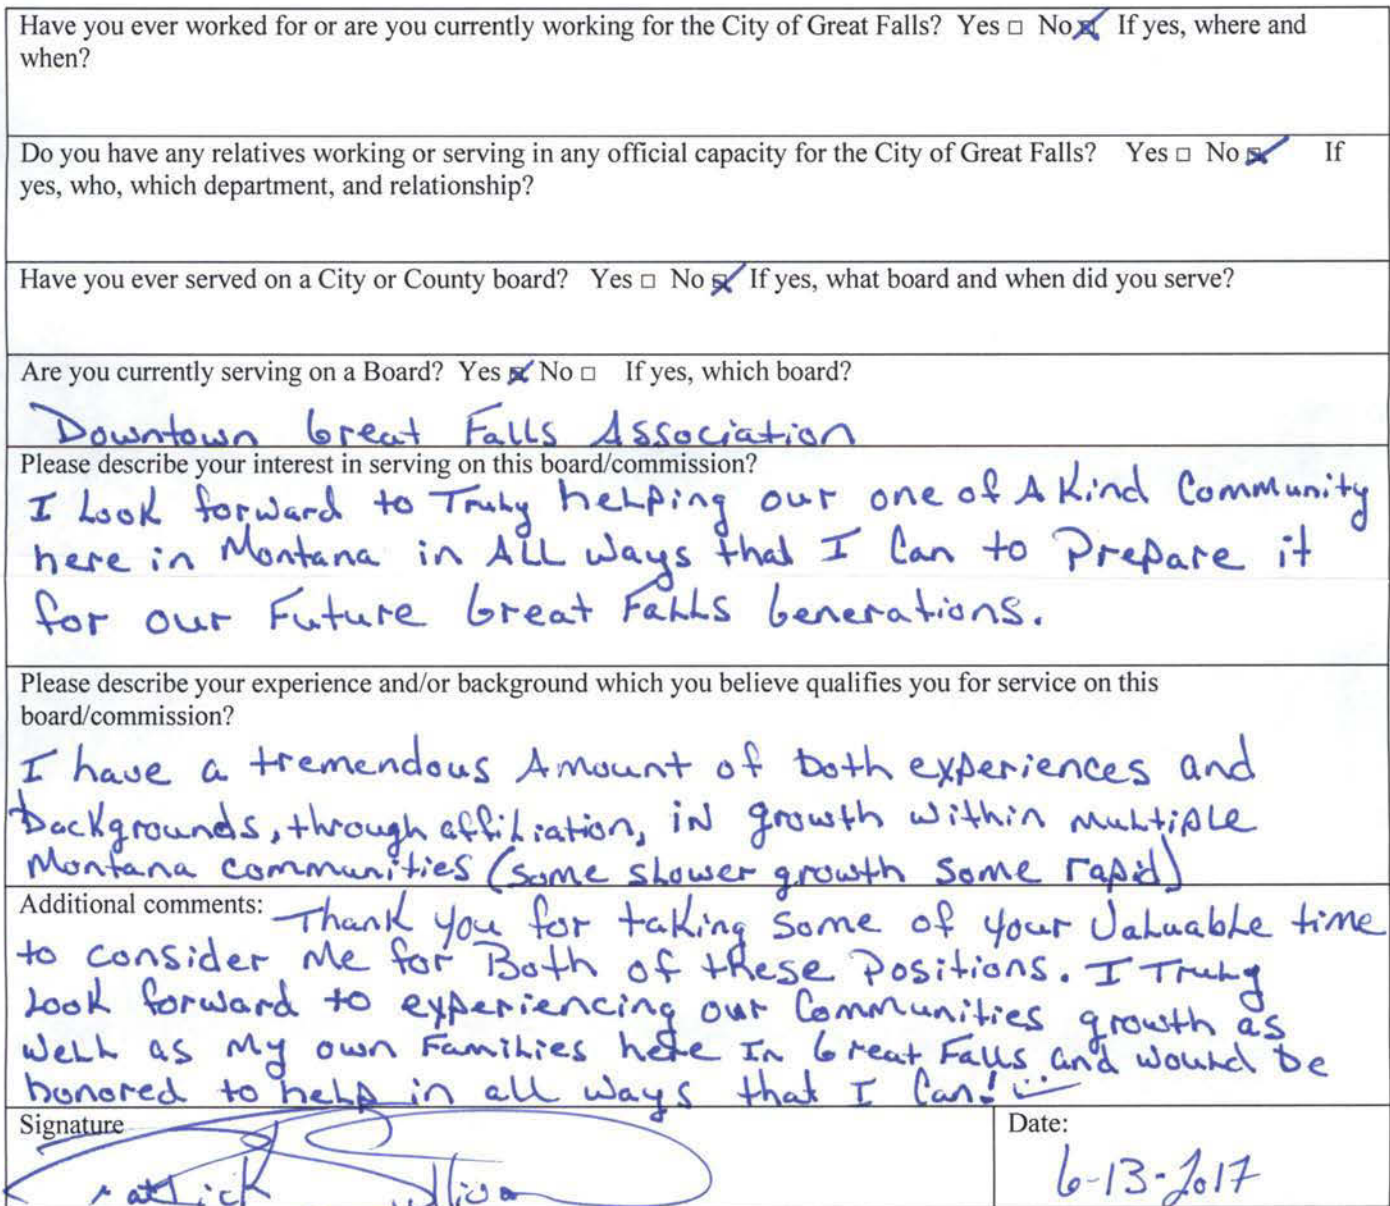 Have you ever worked for or are you currently working for the City of Great Falls? Yes □ No ☒ If yes, where and
when?
Do you have any relatives working or serving in any official capacity for the City of Great Falls? Yes □ No ☒ If
yes, who, which department, and relationship?
Have you ever served on a City or County board? Yes □ No ☒ If yes, what board and when did you serve?
Are you currently serving on a Board? Yes ☒ No □ If yes, which board?
Downtown Great Falls Association
Please describe your interest in serving on this board/commission?
I Look forward to Truly helping our one of A Kind Community
here in Montana in ALL Ways that I Can to Prepare it
for our Future Great Falls Generations.
Please describe your experience and/or background which you believe qualifies you for service on this
board/commission?
I have a tremendous Amount of both experiences and
backgrounds, through affiliation, in growth within multiple
Montana communities (some slower growth some rapid)
Additional comments: Thank you for taking some of your Valuable time
to consider Me for Both of these Positions. I Truly
Look forward to experiencing our Communities growth as
well as My own Families here In Great Falls and would be
honored to help in all ways that I Can!
Signature
Patrick
Date:
6-13-2017